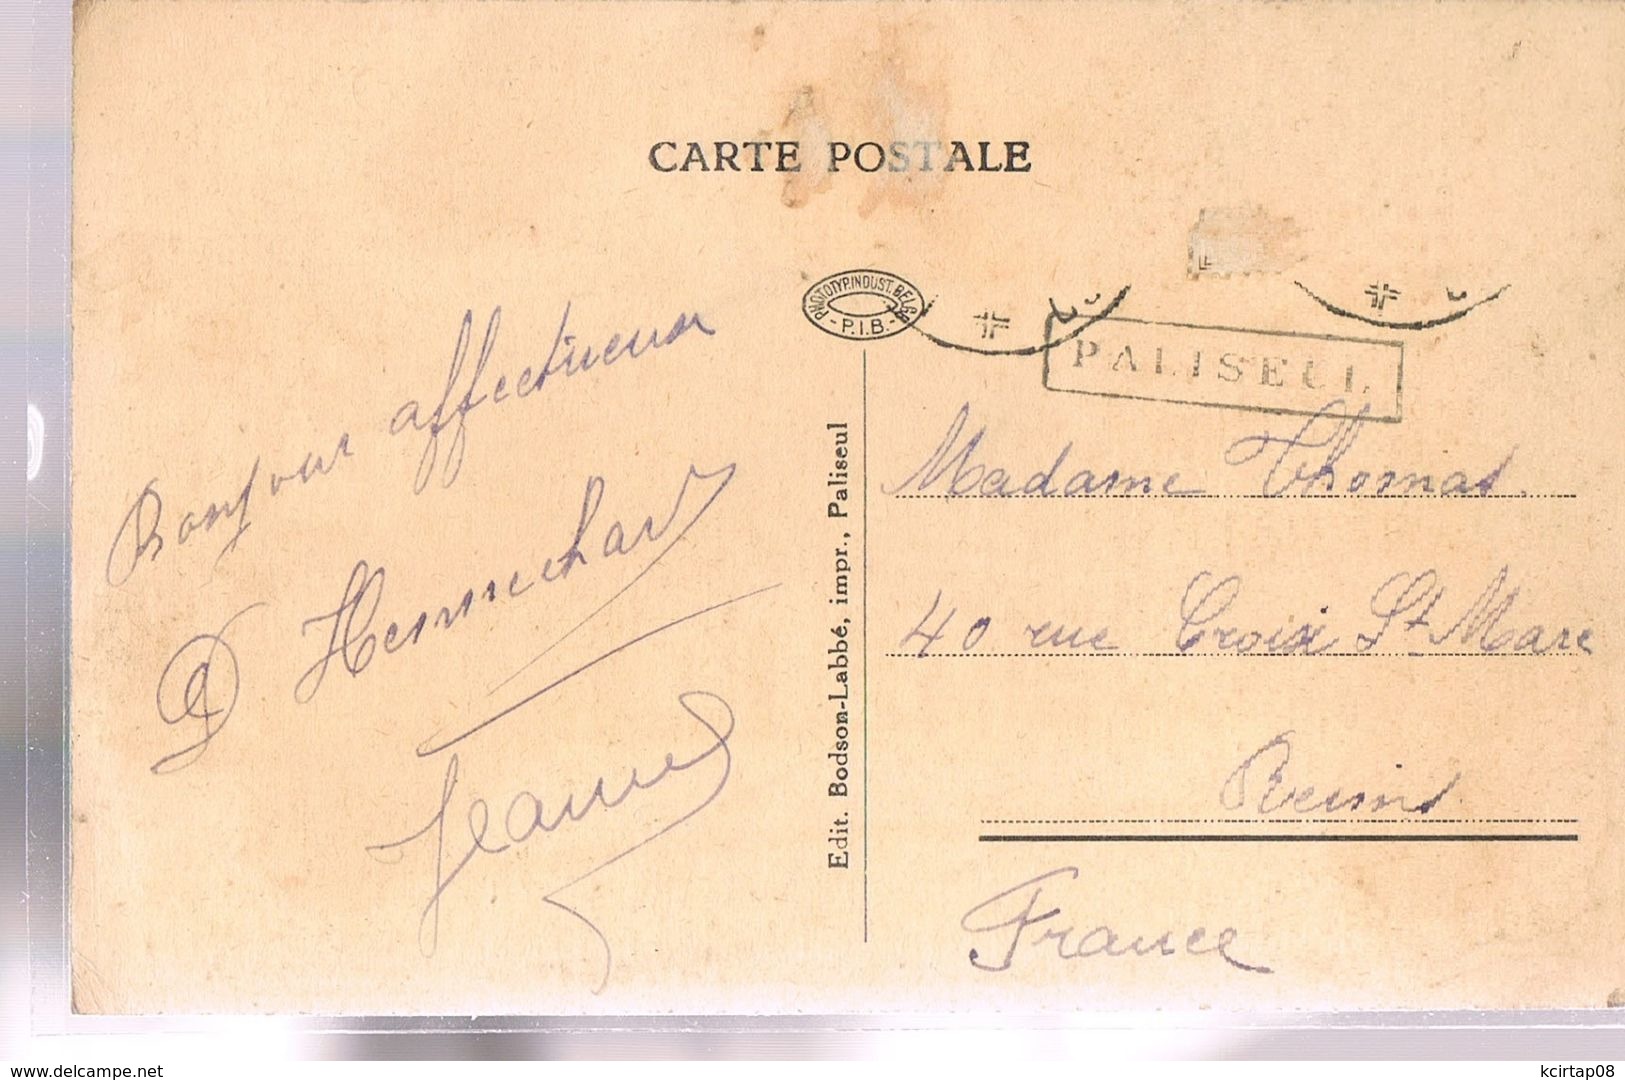 CARTE POSTALE
PHOTOTYP. INDUST. BELGE
- P.I.B. -
PALISEUL
Bonjour affectueux
Jeanne
Edit. Bodson-Labbé, impr., Paliseul
Madame Thomas
40 rue Croix St Marc
Reims
France
www.delcampe.net
kcirtap08